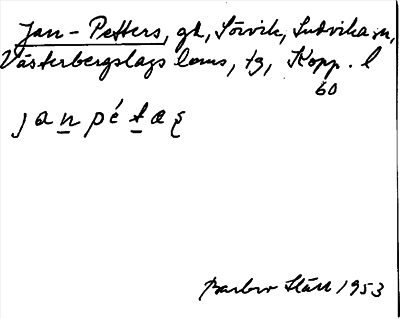 Jan-Petters, gd, Sörvik, Ludvika sn,
Västerbergslags doms, tg, Kopp. l
60
jan pétas
1953